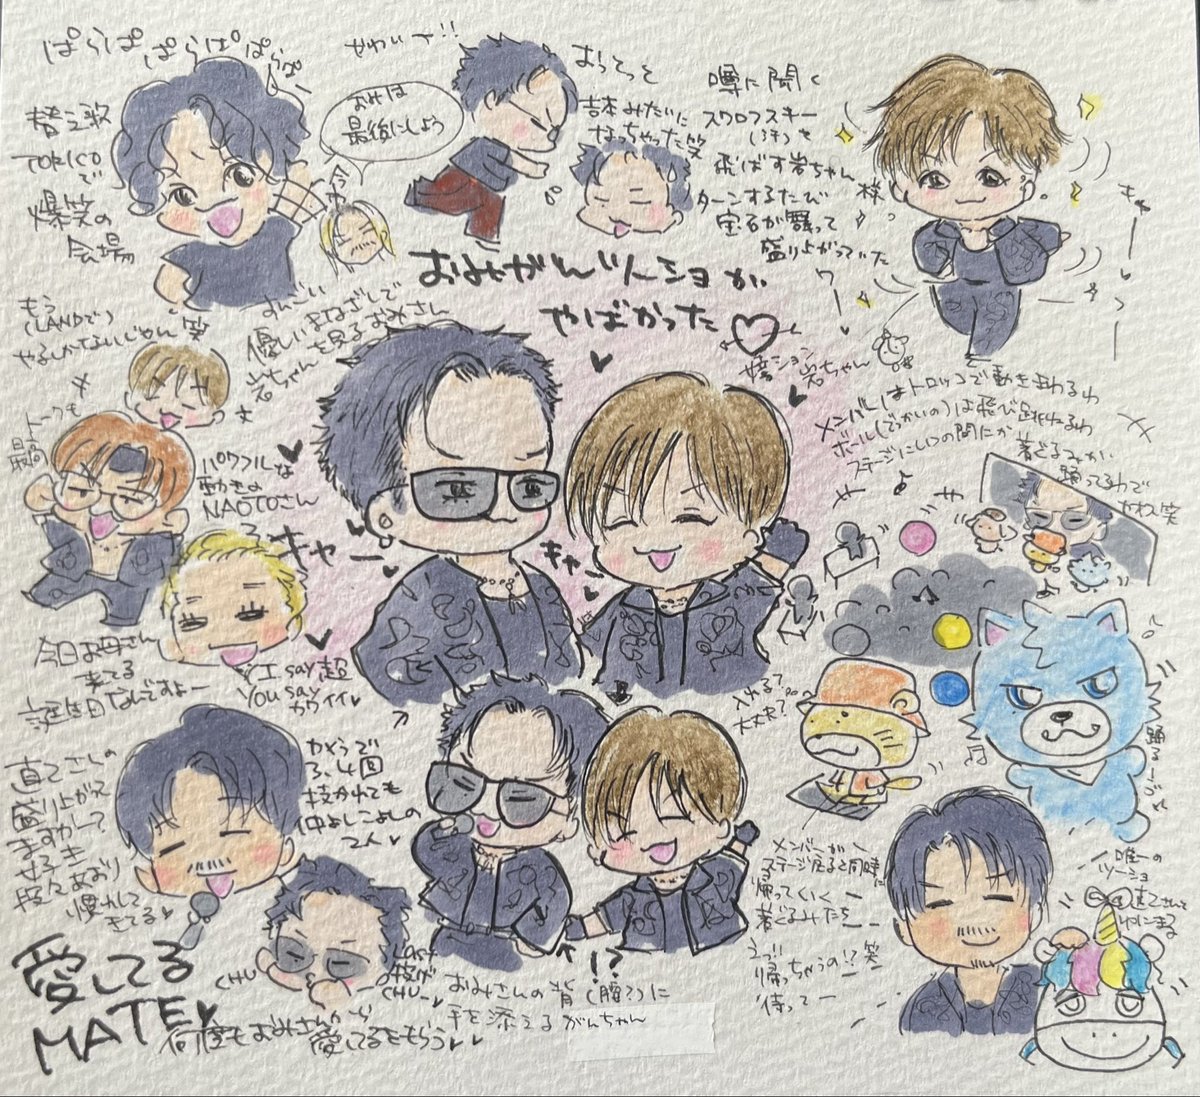 ぱらぱぱらぱぱらぱ
替え歌
TORICOで
爆笑の
会場
やわいー!!
おみは
最後にしよう
おっとっと
みたいに
なっちゃった笑
噂に聞く
スワロフスキー
(汗)を
飛ばす岩ちゃん様
ターンするたび
宝石が舞って
盛り上がっていた
ワー
きゃーっ
おみがんツーショが
やばかった♡
もう
(LANDで)
やるしかないじゃん笑
すんごい
優しいまなざしで
岩ちゃんを見るおみさん
トークも
最高
パワフルな
動きの
NAOTOさん
キャー
キャー
岩ちゃん
メンバーはトロッコで動きまわるわ
ボール(でっかいの)は飛び跳ねるわ
ステージにいつの間にか
着ぐるみが
踊ってるわで
かわい笑
今日お母さん
来てる
誕生日なんですよー
I say 超
You say
カワイイ♥
入れる?
大丈夫?
踊るジージ
直でこしの
盛り上がって
ますかー?
せっき
段々あおり
懐かしく
きてる♥
かどうで
3,4回
抜かれても
仲よしこよしの
2人♥
メンバーが
ステージ戻ると同時に
帰っていく
着ぐるみたち
えっ!!
帰っちゃうの!?笑
待ってー
唯一の
ツーショ
直己さんと
ゆにまる
愛してる
MATE♥
CHU
Last
投げ
CHU
!?
おみさんの背(腰?)に
手を添えるがんちゃん
何度もおみさんから
愛してるをもらう♥♥